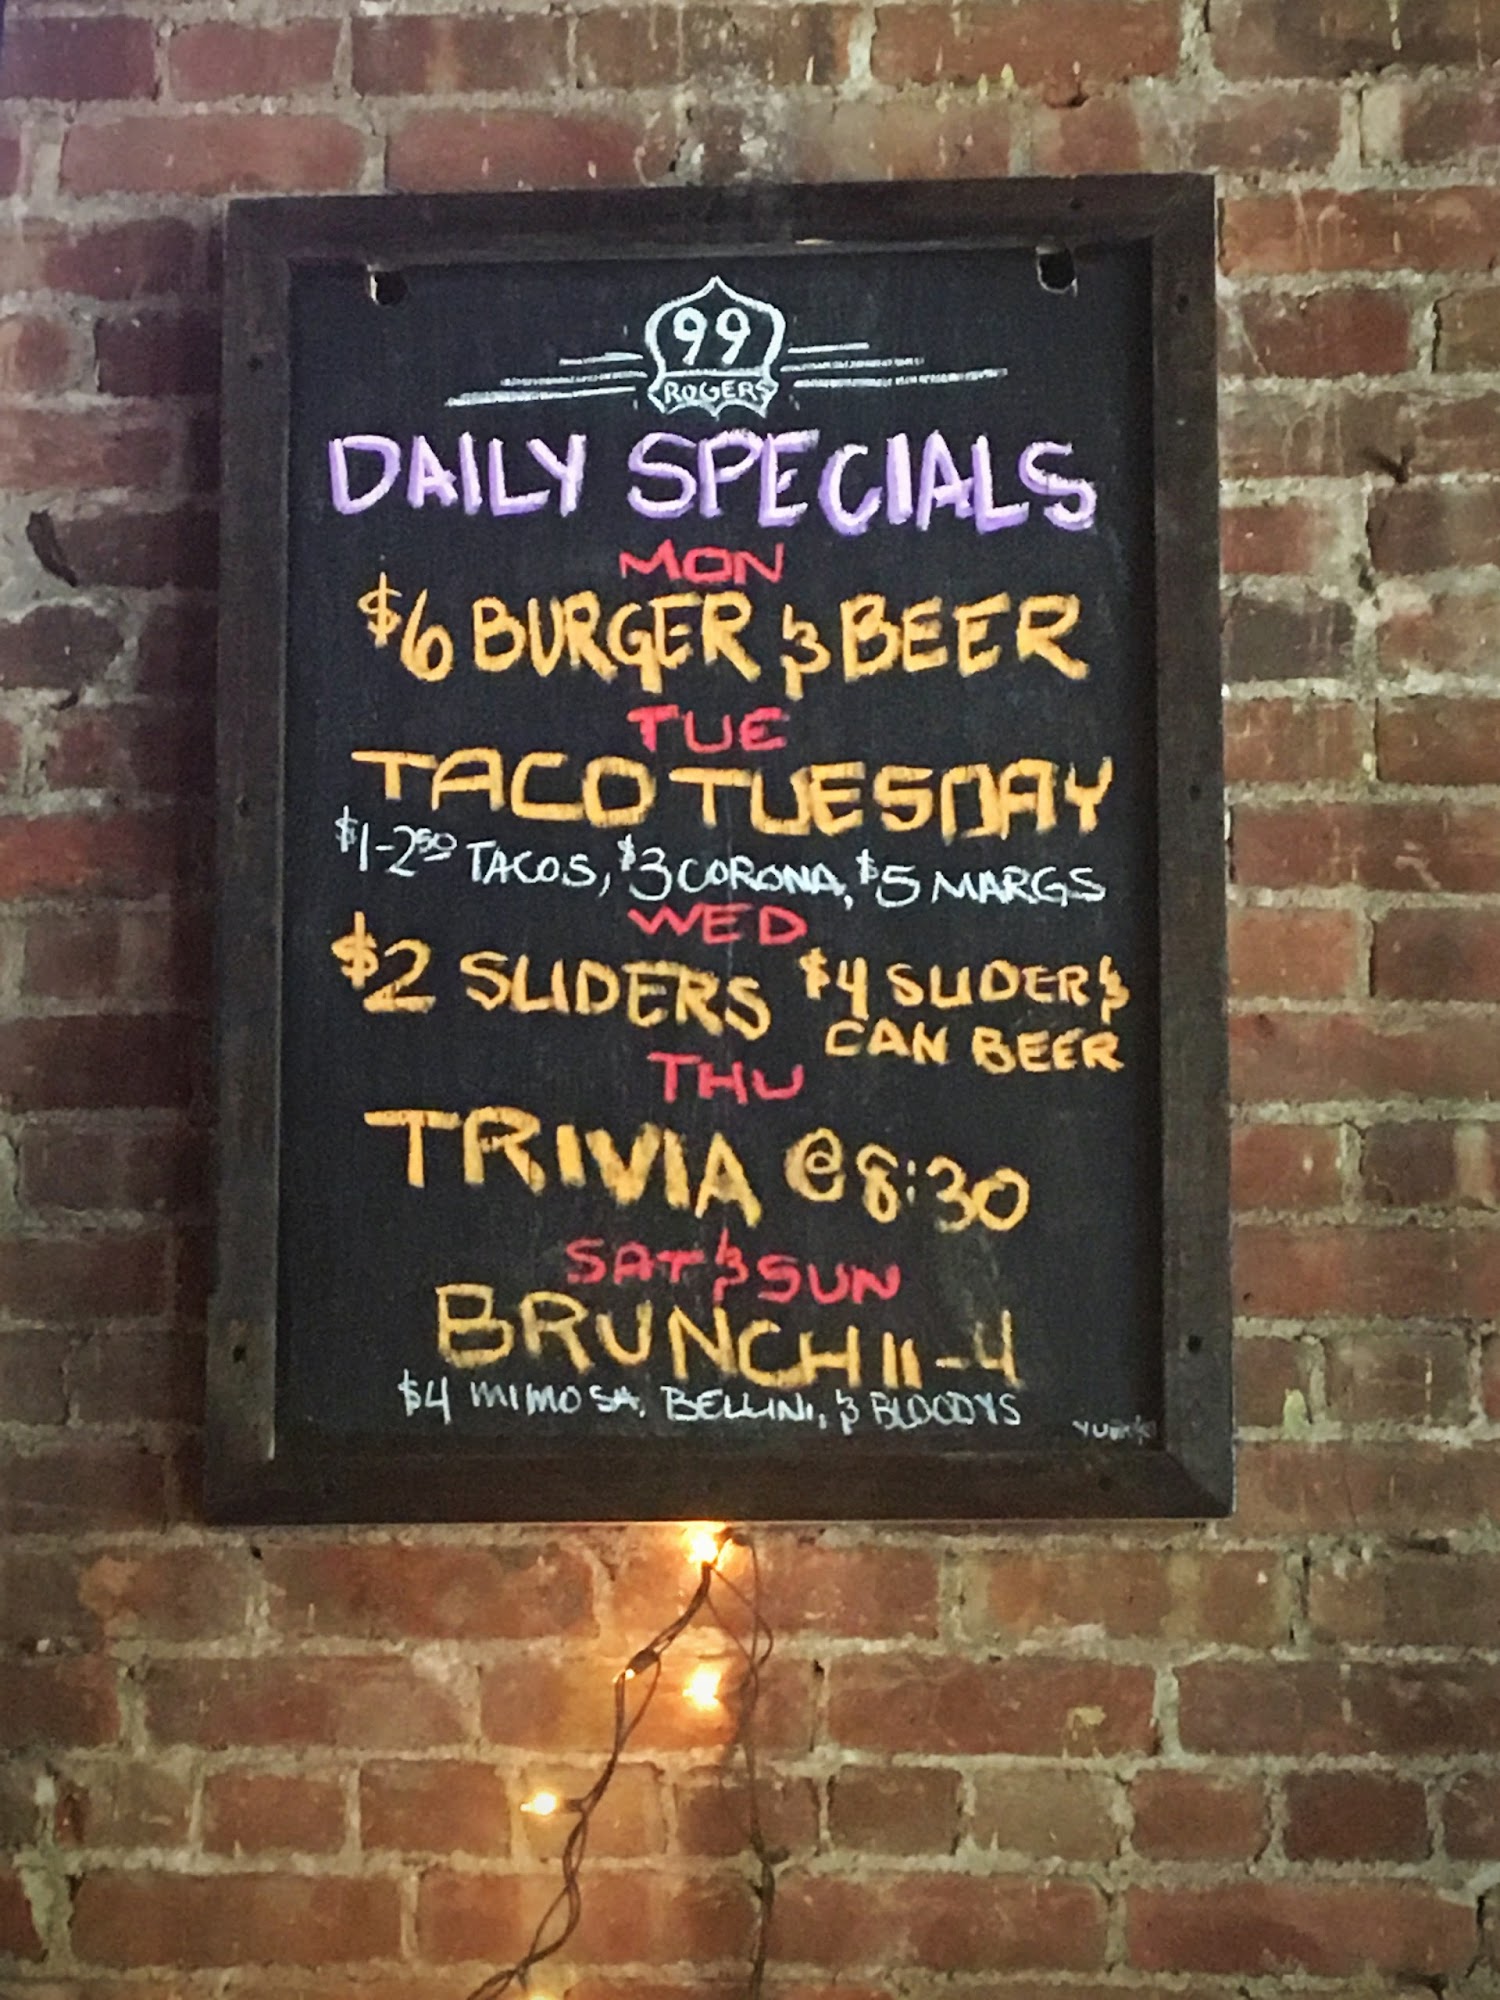 99
ROGERS
DAILY SPECIALS
MON
$6 BURGER & BEER
TUE
TACO TUESDAY
$1-2.50 TACOS, $3 CORONA, $5 MARGS
WED
$2 SLIDERS $4 SLIDER &
CAN BEER
THU
TRIVIA @ 8:30
SAT & SUN
BRUNCH 11-4
$4 MIMOSA, BELLINI, & BLOODYS